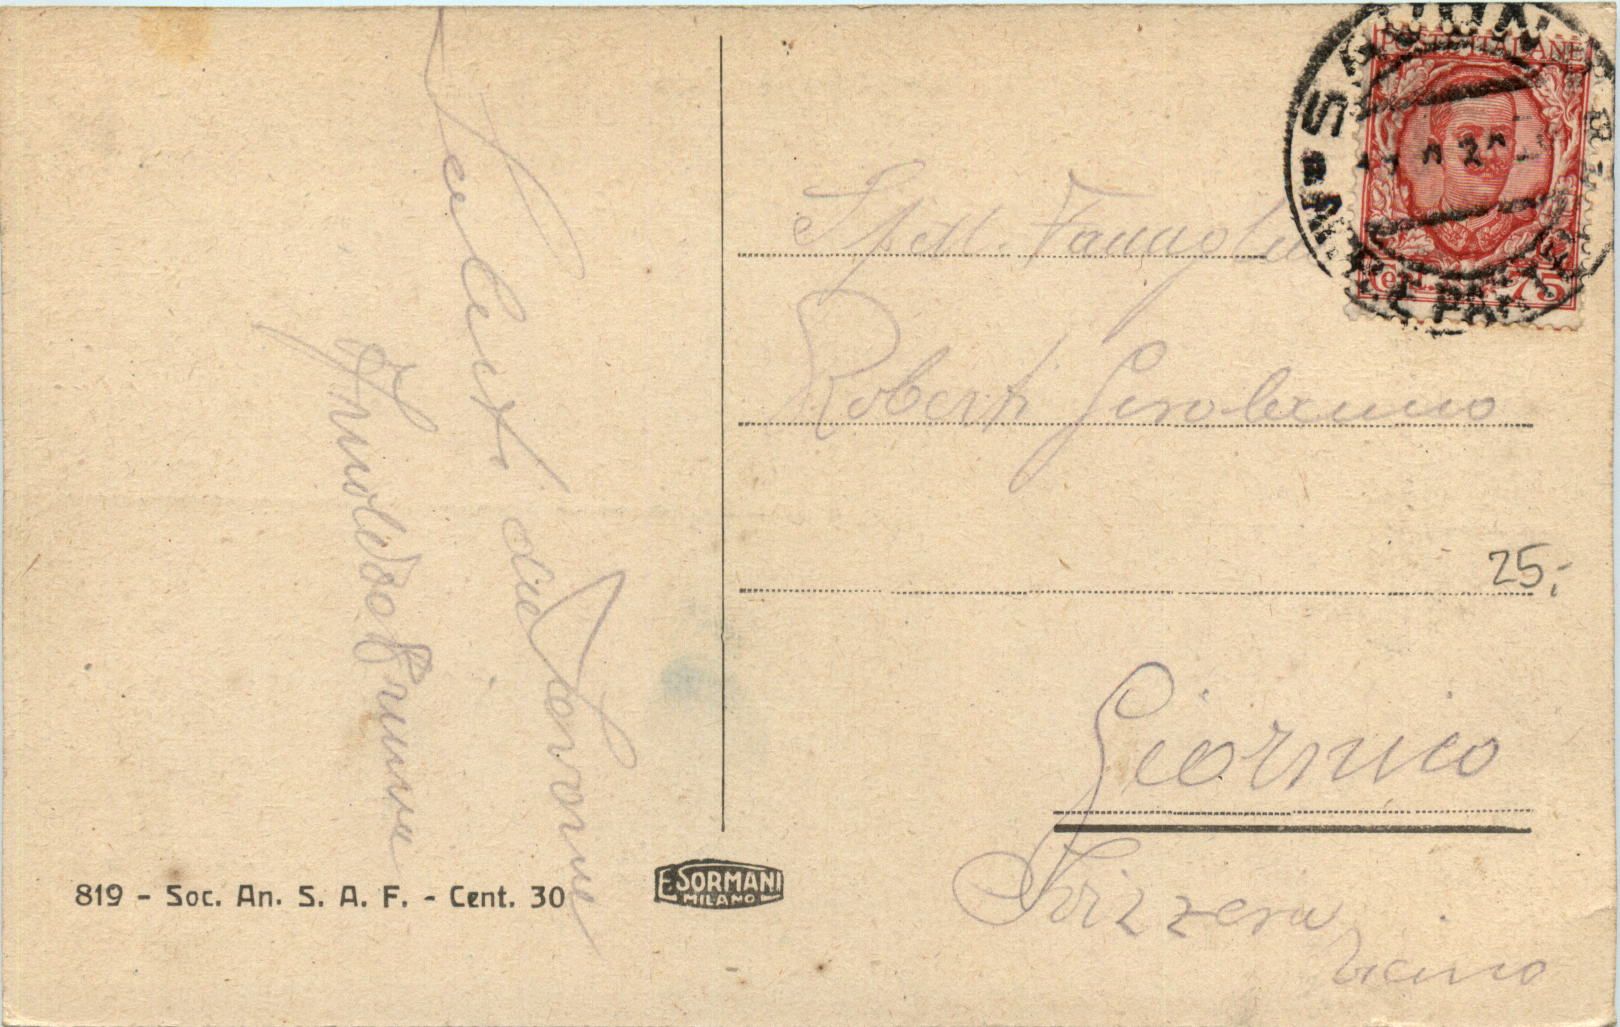 Saluti da Savone
Arnoldo e Emma
POSTE ITALIANE
Cent. 75
Spett. Famiglia
Roberti Gerolamino
25.-
Giornico
Svizzera
Ticino
819 - Soc. An. S. A. F. - Cent. 30
E. SORMANI
MILANO